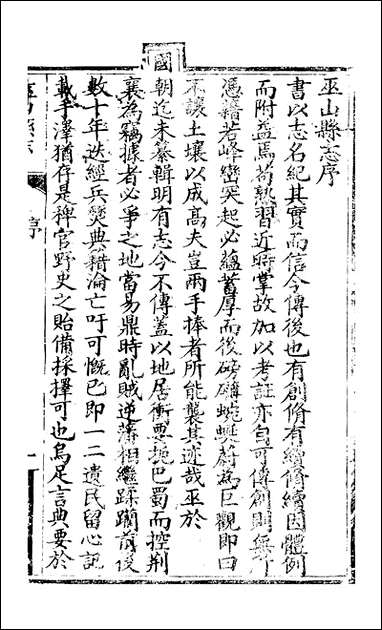 巫山縣志序
書以志名紀其實而信今傳後也有創脩有續脩續因體例
而附益焉茍熟習近時掌故加以考証亦自可傳創則無所
憑藉若峰巒突起必蘊蓄厚而後磅礴蜿蜒蔚為巨觀即曰
不讓土壤以成高夫豈兩手捧者所能襲其迹哉巫於
國
朝迄未纂輯明有志今不傳蓋以地居衝要扼巴蜀而控荆
襄為竊據者必爭之地當易鼎時亂賊逆藩相繼蹂躪前後
數十年迭經兵燹典籍淪亡吁可慨已即一二遺民留心記
載手澤猶存是稗官野史之貽備採擇可也烏足言典要於
巫山縣志
序
一